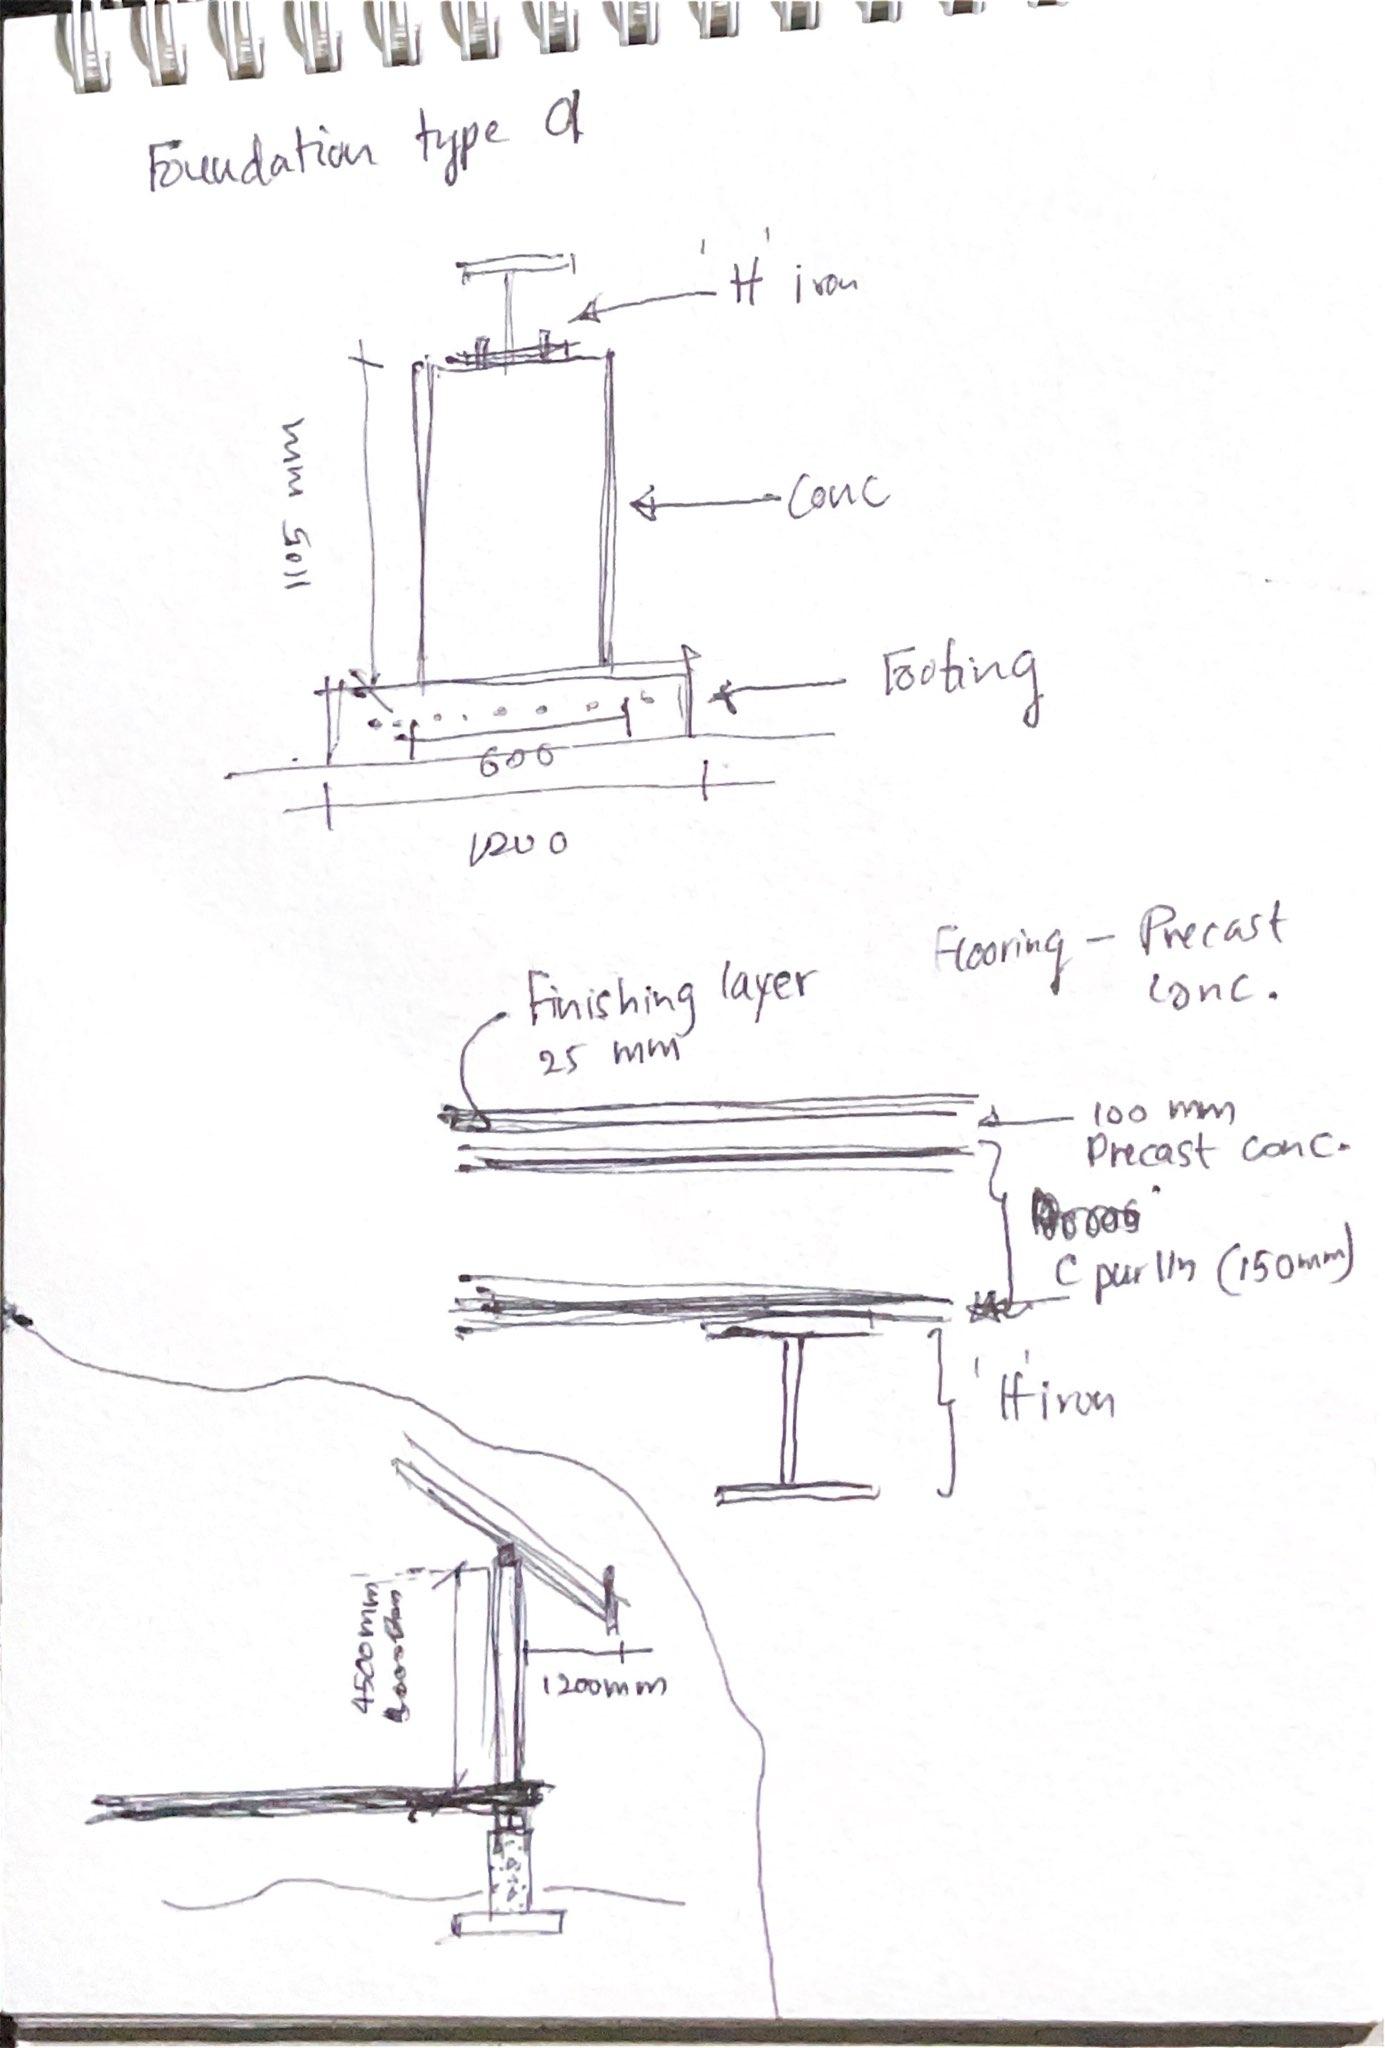 Foundation type a
'H' iron
1105 mm
Conc
Footing
600
1200
Flooring - Precast
conc.
Finishing layer
25 mm
100 mm
Precast conc.
C purlin (150mm)
'H' iron
4500mm
1200mm